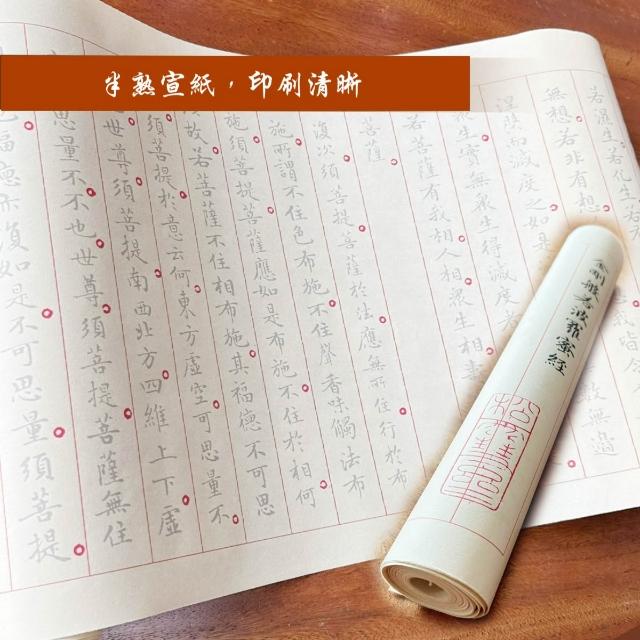 半熟宣紙，印刷清晰
若濕生若化生若
無想若非有想
涅槃而滅度之如是
眾生實無眾生得滅度者
若菩薩有我相人相眾生相壽
菩薩
復次須菩提菩薩於法應無所住行於布
施所謂不住色布施不住聲香味觸法布
施須菩提菩薩應如是布施不住於相何
故若菩薩不住相布施其福德不可思
須菩提於意云何東方虛空可思量不
世尊須菩提南西北方四維上下虛
思量不不也世尊須菩提菩薩無住
福德亦復如是不可思量須菩提
金剛般若波羅蜜經